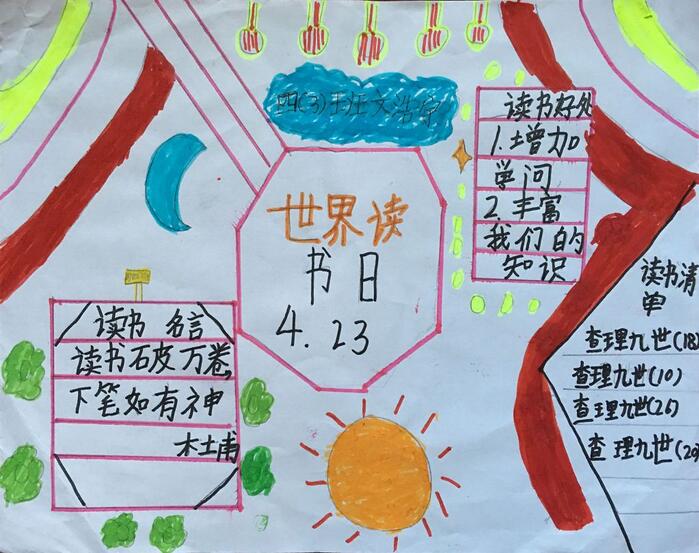 四(3)班文浩宇
世界读
书日
4.23
读书好处
1.增加
学问
2.丰富
我们的
知识
读书名言
读书破万卷,
下笔如有神
杜甫
读书清
单
查理九世(18)
查理九世(10)
查理九世(26)
查理九世